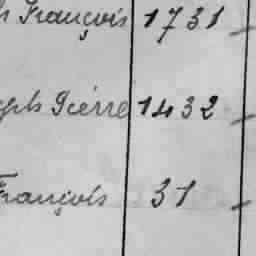 François 1731 –
Pierre 1432 –
François 31 –